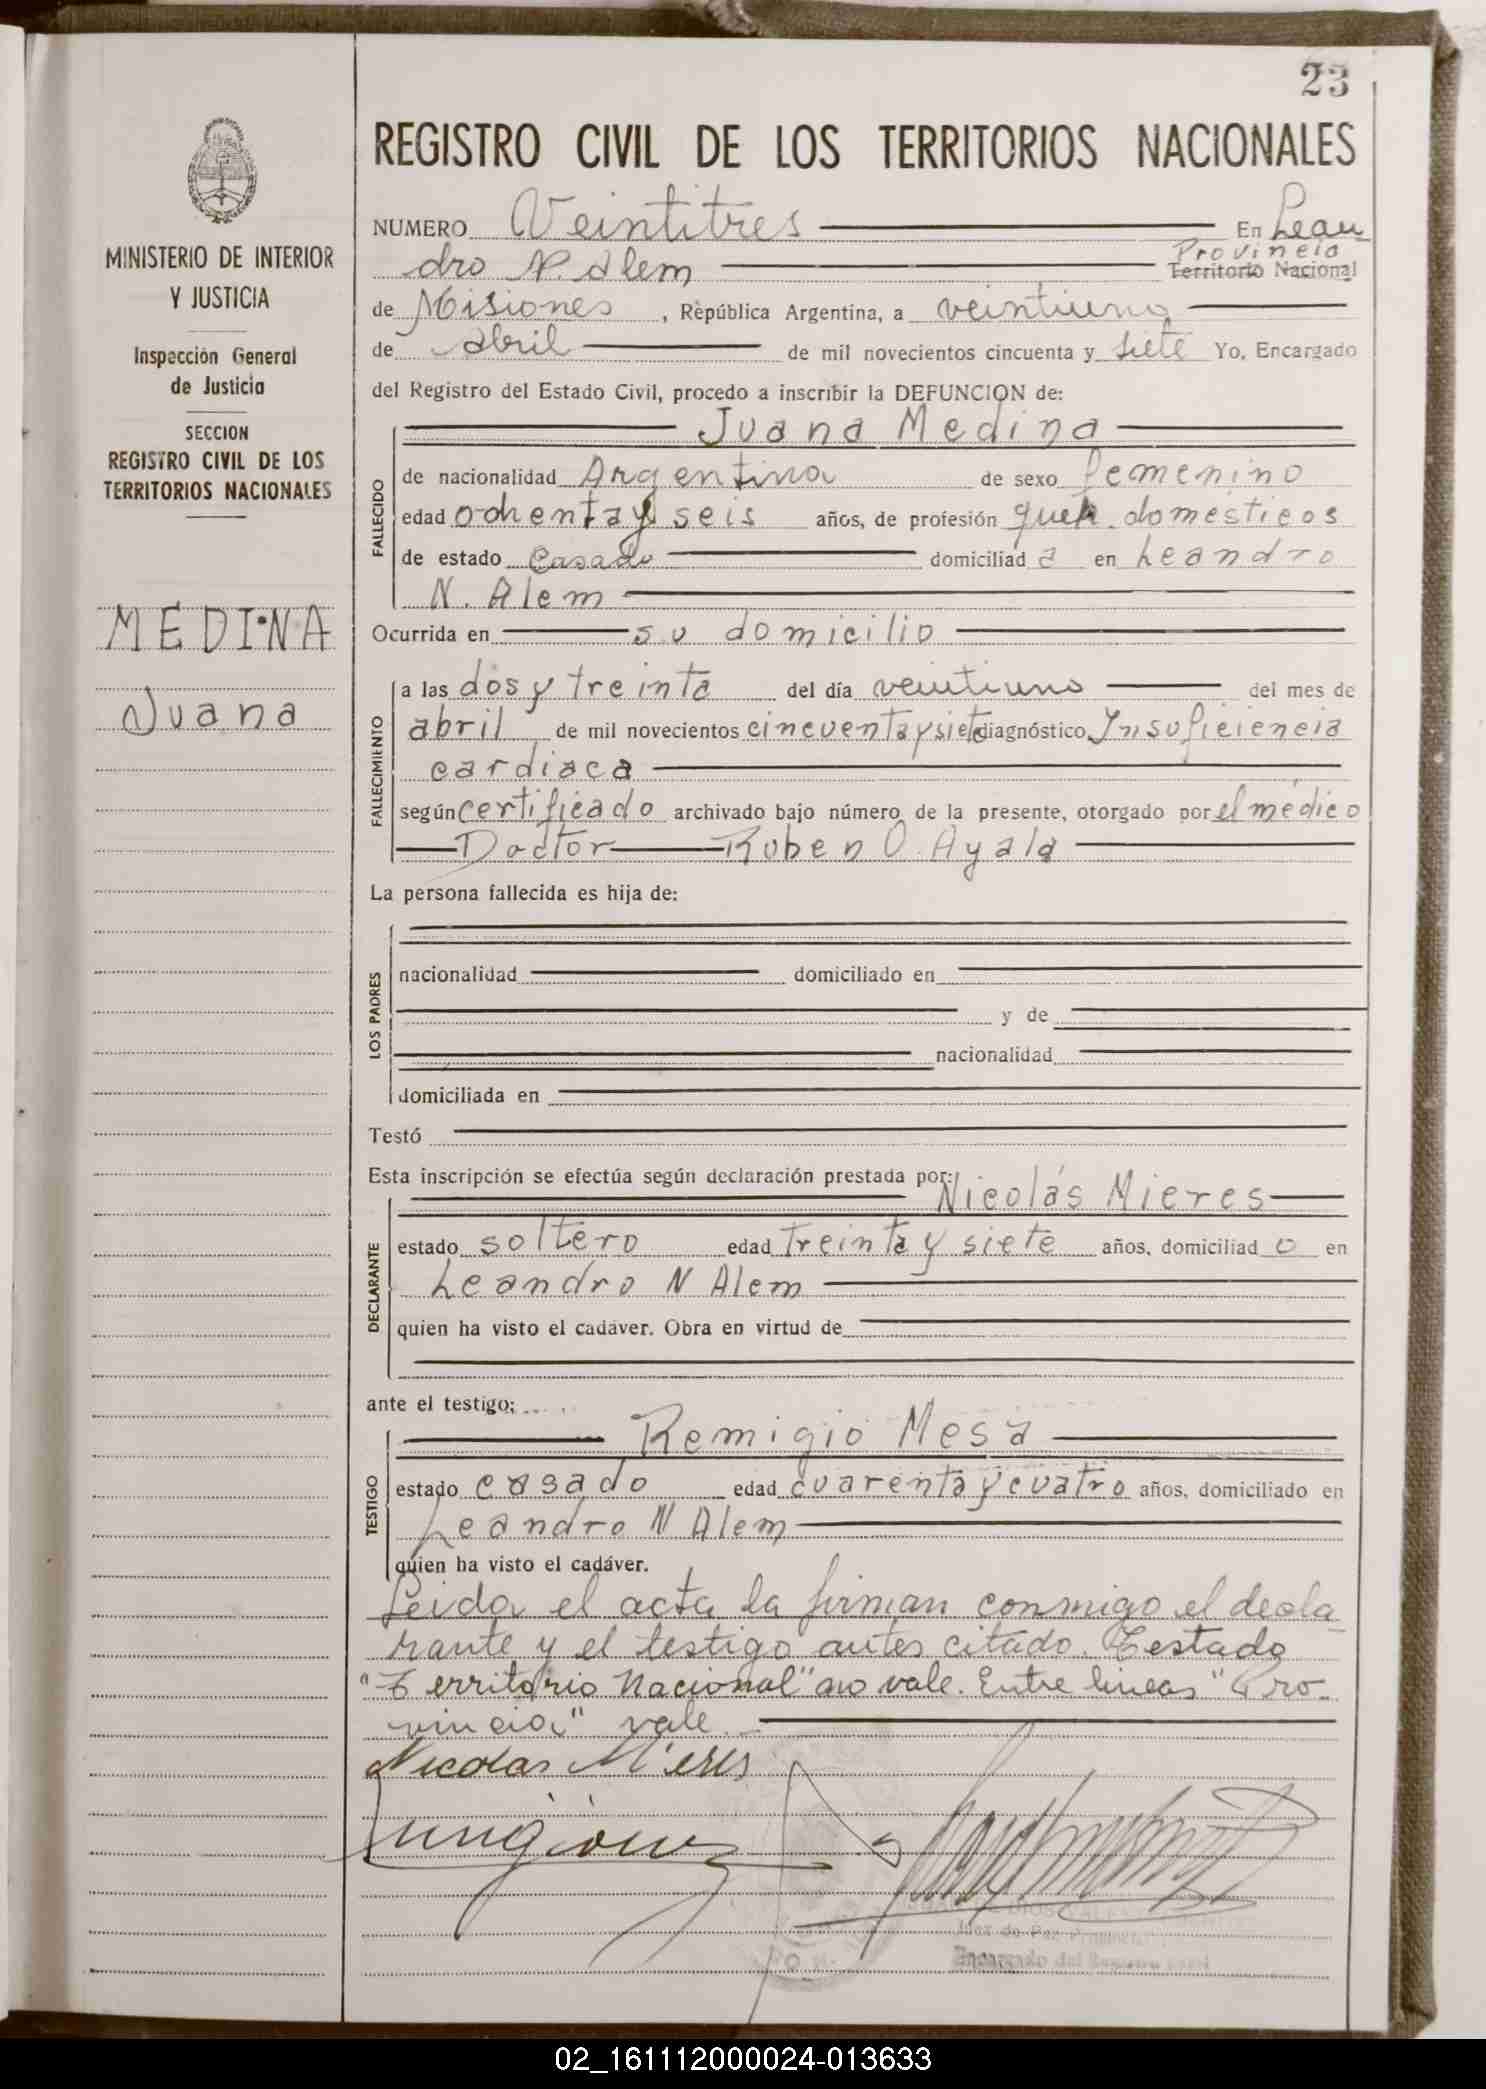 23
REGISTRO CIVIL DE LOS TERRITORIOS NACIONALES
MINISTERIO DE INTERIOR
Y JUSTICIA
Inspección General
de Justicia
SECCION
REGISTRO CIVIL DE LOS
TERRITORIOS NACIONALES
MEDINA
Juana
NUMERO Veintitres En Lean
dro N. Alem Provincia Territorio Nacional
de Misiones, República Argentina, a veintiuno
de abril de mil novecientos cincuenta y siete Yo, Encargado
del Registro del Estado Civil, procedo a inscribir la DEFUNCION de:
Juana Medina
FALLECIDO
de nacionalidad Argentina de sexo femenino
edad ochenta y seis años, de profesión queh. domésticos
de estado Casada domiciliad a en Leandro
N. Alem
Ocurrida en su domicilio
FALLECIMIENTO
a las dos y treinta del día veintiuno del mes de
abril de mil novecientos cincuenta y siete diagnóstico Insuficiencia
cardiaca
según certificado archivado bajo número de la presente, otorgado por el médico
Doctor Ruben O. Ayala
La persona fallecida es hija de:
LOS PADRES
nacionalidad domiciliado en
y de
nacionalidad
domiciliada en
Testó
Esta inscripción se efectúa según declaración prestada por: Nicolás Mieres
DECLARANTE
estado soltero edad treinta y siete años, domiciliad o en
Leandro N Alem
quien ha visto el cadáver. Obra en virtud de
ante el testigo;
Remigio Mesa
TESTIGO
estado casado edad cuarenta y cuatro años, domiciliado en
Leandro N Alem
quien ha visto el cadáver.
Leida el acta la firman conmigo el decla
rante y el testigo antes citado. Testado
"Territorio Nacional" no vale. Entre lineas "Pro-
vincia" vale.
Nicolas Mieres
Juez de Paz
Encargado del Registro Civil
02_161112000024-013633